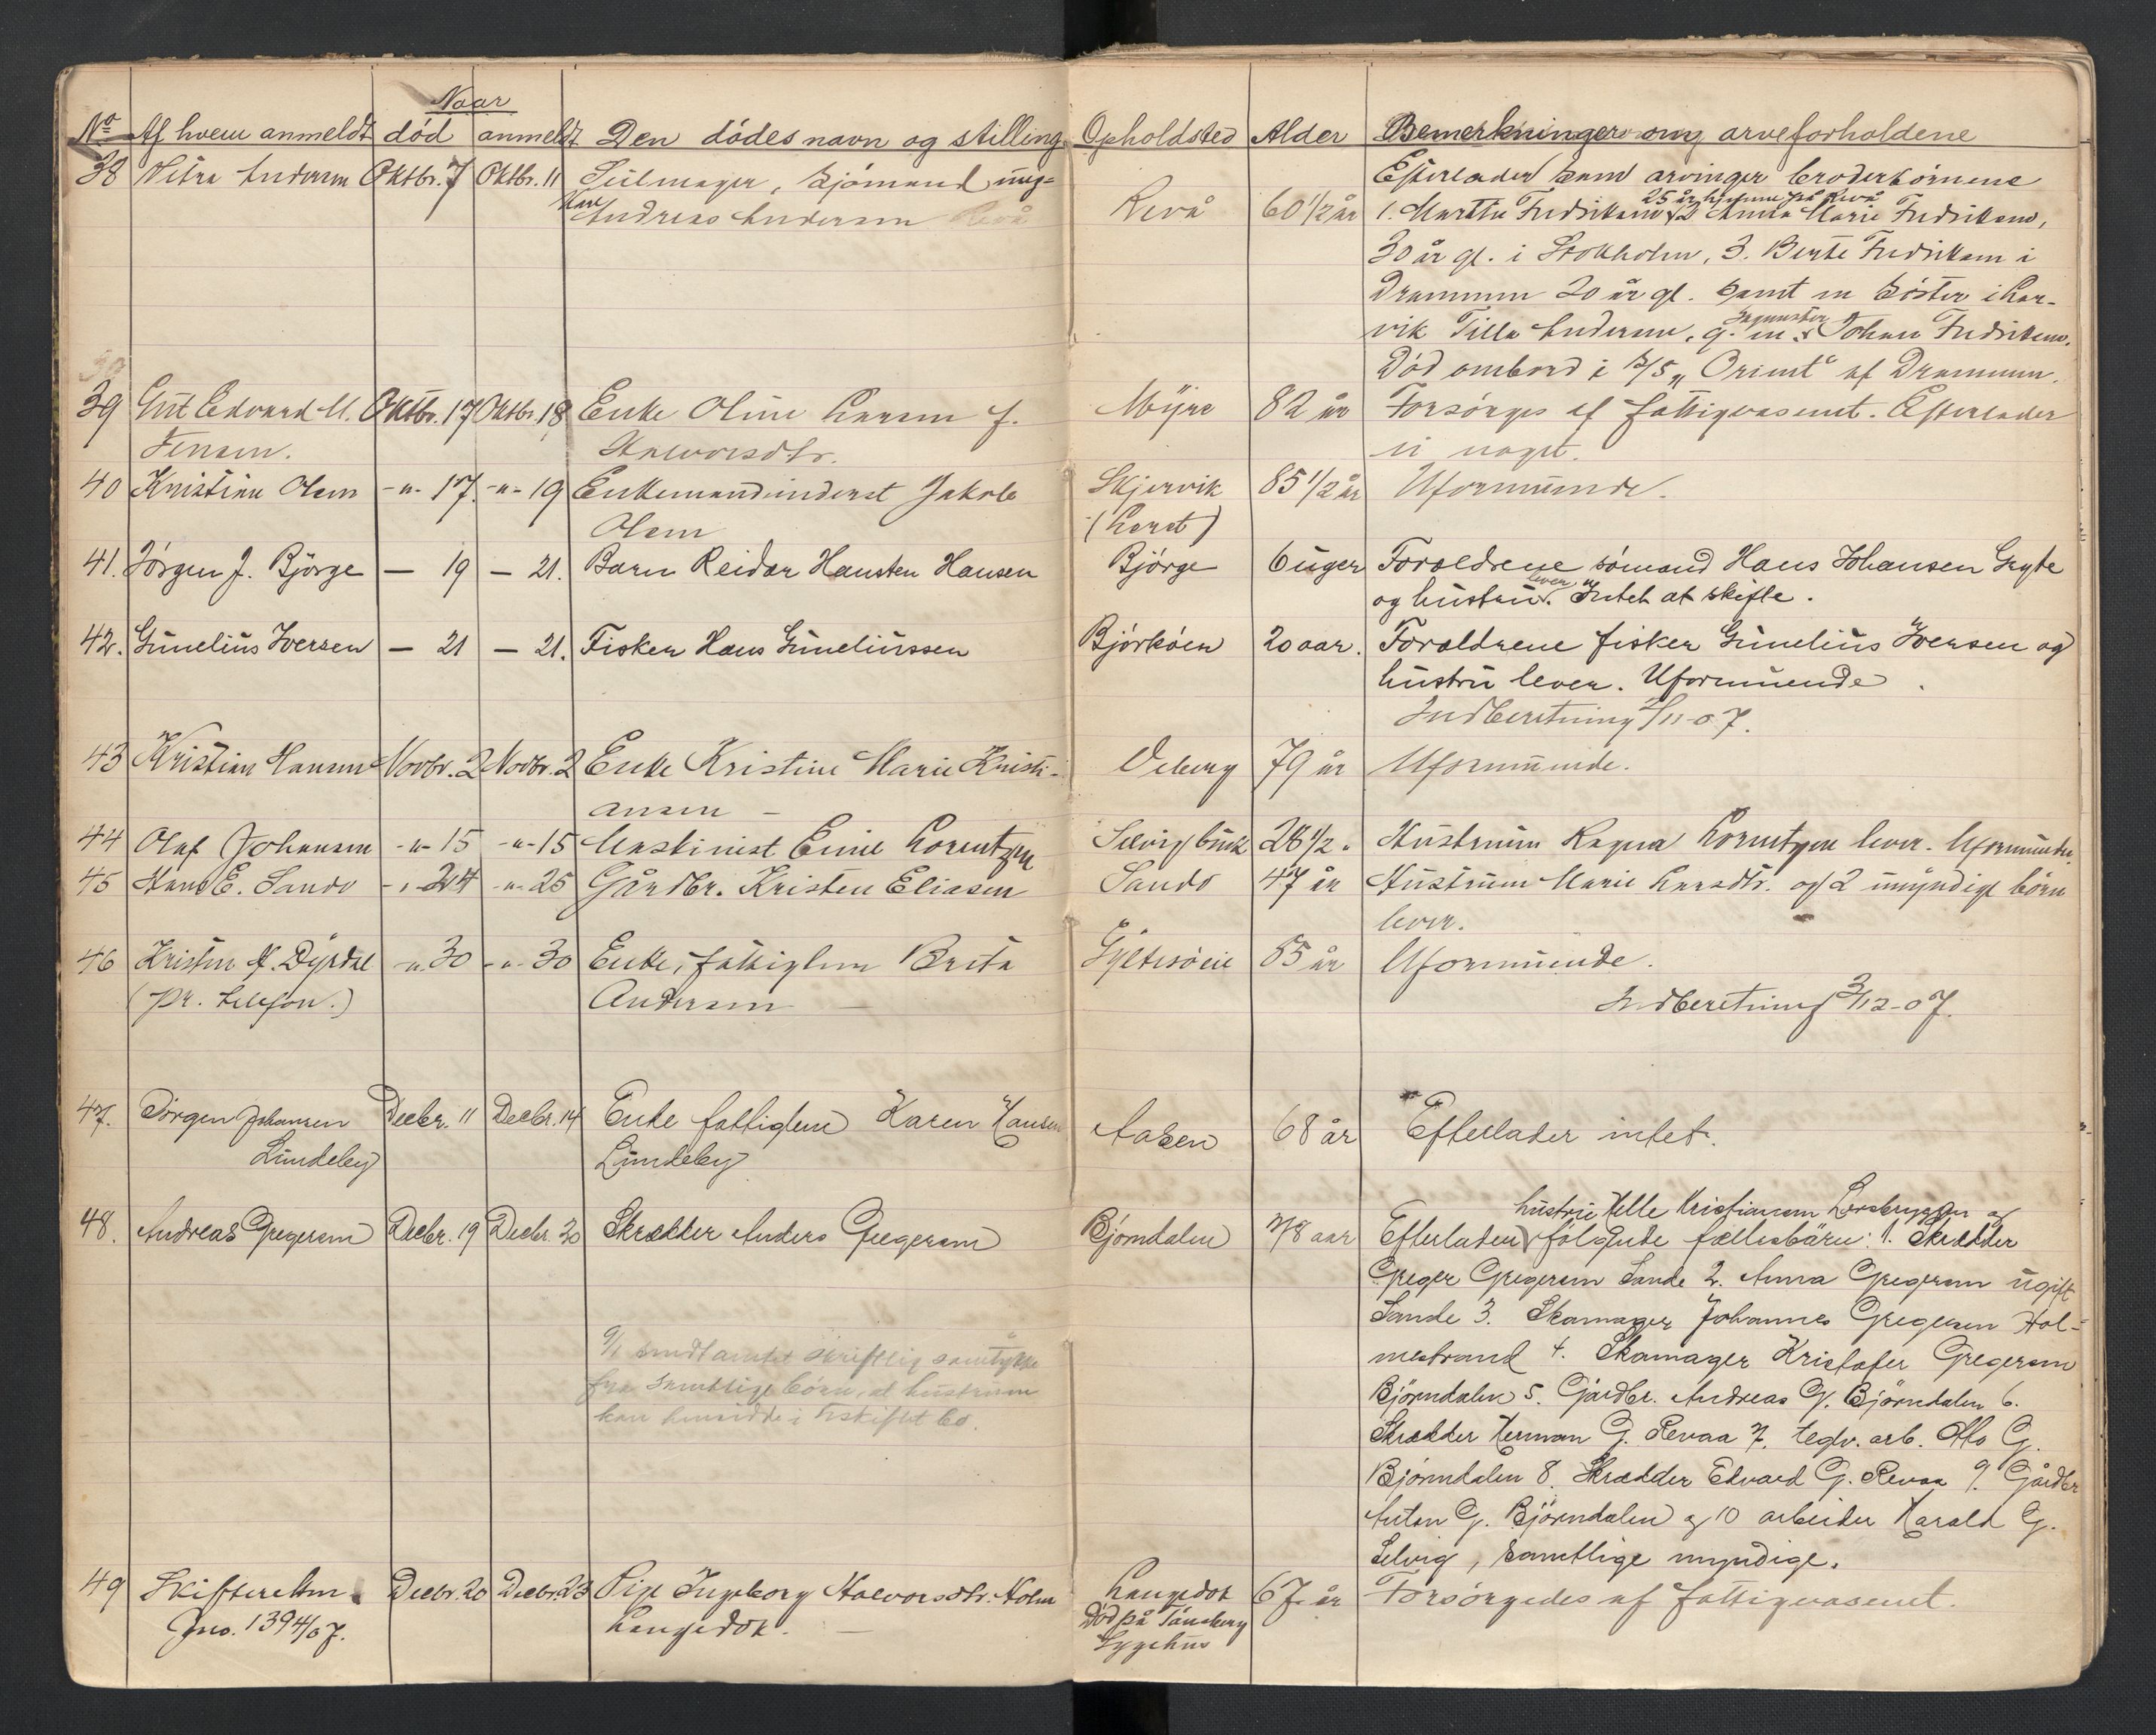 Naar
No Af hvem anmeldt død anmeldt Den dödes navn og stilling Opholdsted Alder Bemerkninger om arveforholdene
38 Petra Andersen Oktbr. 7 Oktbr. 11 Seilmager, sjömand ung- Revå 60 1/2 år Efterlader som arvinger broderbörnene
kar Andreas Andersen Revå 1. Martha Fredriksen 25 år hjemme på Revå 2 Anna Marie Fredriksen,
30 år gl. i Stokholm, 3. Berte Fredriksen i
Drammen 20 år gl. samt en söster i Lar-
vik Tilla Andersen, g. m. Johan Fredriksen.
Död ombord i S/S „Orient" af Drammen.
39 Gut Edvard M. Oktbr. 17 Oktbr. 18 Enke Oline Larsen f. Myre 82 år Forsörges af fattigvæsenet. Efterlader
Jensen. Halvorsdtr. ei noget.
40 Kristian Olsen -"- 17. -"- 19 Enkemand inderst Jakob Skjervik 85 1/2 år Uformuende.
Olsen
41. Jörgen J. Bjørge — 19 — 21. Barn Reidar Hansten Hansen Bjørge 6 uger Foræeldrene sömand Hans Johansen Gryte
og hustru lever. Intet at skifte.
42. Gunelius Iversen — 21 — 21. Fisker Hans Guneliussen Björköen 20 aar. Foræeldrene fisker Gunelius Iversen og
hustru lever. Uformuende.
Indberetning /11-07.
43 Kristian Hansen Novbr. 2 Novbr. 2 Enke Kristine Marie Kristi- 79 år Uformuende.
ansen —
44 Olaf Johansen -"- 15 -"- 15 Maskinist Emil Lorentzen Selvig bruk 28 1/2 " Hustruen Ragna Lorentzen lever. Uformuende
45 Hans E. Sando -"- 24 -"- 25 Gårdbr. Kristen Eliasen Sando 47 år Hustruen Marie Larsdtr. og 2 umyndige börn
lever.
46 Kristen K. Dyrdal -"- 30 -"- 30 Enke, fattiglem Berta 85 år Uformuende.
(pr. telefon.) Andersen — Indberetning 3/12-07.
47. Jörgen Johansen Decbr. 11 Decbr. 14 Enke fattiglem Karen Hansen Aasen 68 år Efterlader intet.
Lundeby Lundeby
48. Andreas Gregersen Decbr. 19 Decbr. 20 Skrædder Anders Gregersen Bjørndalen 78 aar hustru Helle Kristiansen og
Efterlader følgende fællesbärn: 1. Skrædder
Greger Gregersen Sande 2. Anna Gregersen ugift
Sande 3. Skomager Johannes Gregersen Hol-
mestrand 4. Skomager Kristofer Gregersen
Björndalen 5. Gårdbr. Andreas G. Björndalen 6.
9/1 indhentet skriftlig samtykke
fra samtlige börn, at hustruen
kan hensidde i uskiftet bo.
Skrædder Herman G. Revaa 7. teglv. arb. Otto G.
Björndalen 8. Skrædder Edvard G. Revaa 9. Gårdbr
Anton G. Björndalen og 10 arbeider Harald G.
Selvig, samtlige myndige.
49 Skifteretten Decbr. 20 Decbr. 23 Pige Ingeborg Halvorsdtr. Holm Langedok 67 år Forsörgedes af fattigvæsenet.
Jno. 1394/07. Langedok. — Död på Tönsberg
Sygehus